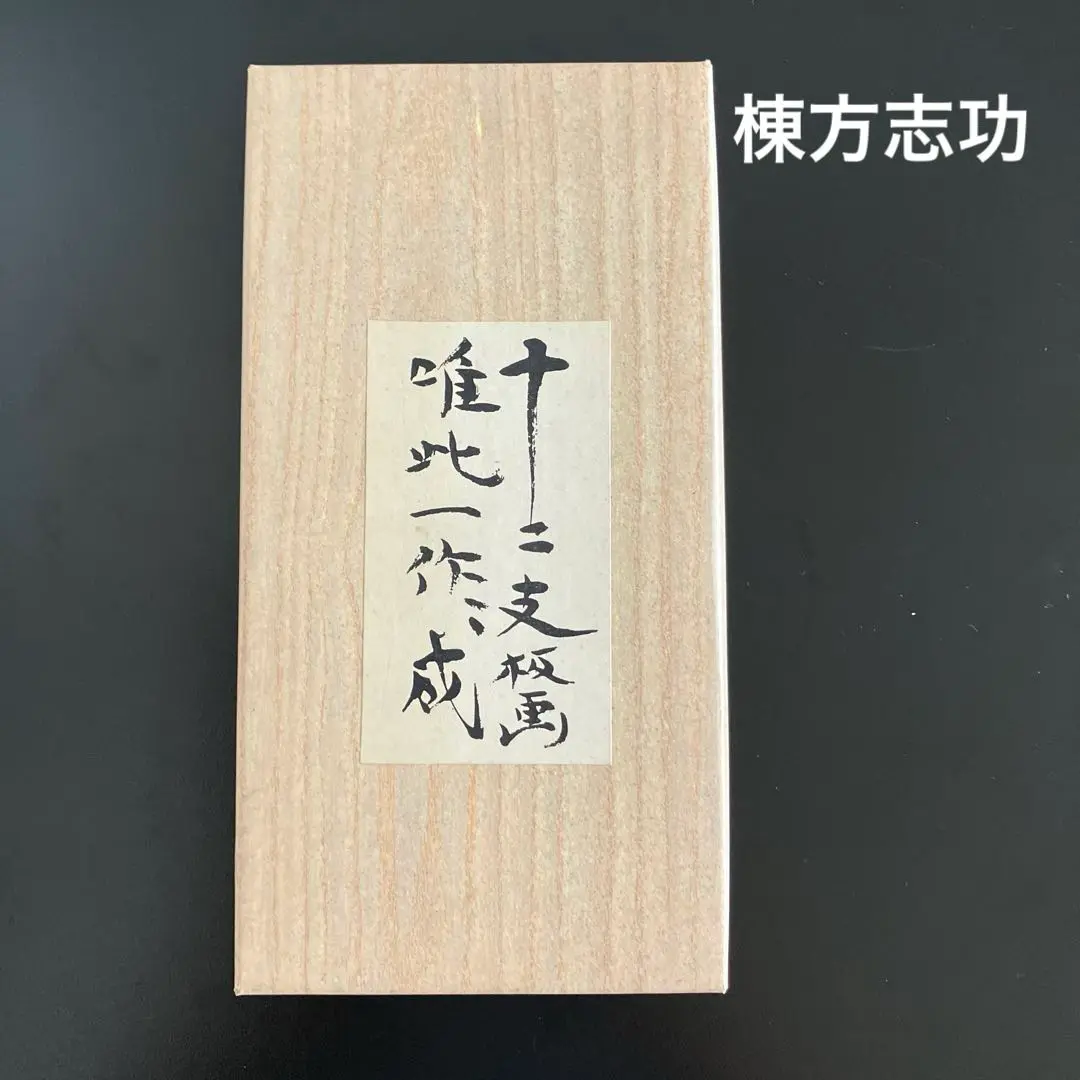 棟方志功
十二支板画
唯此一作ニ成